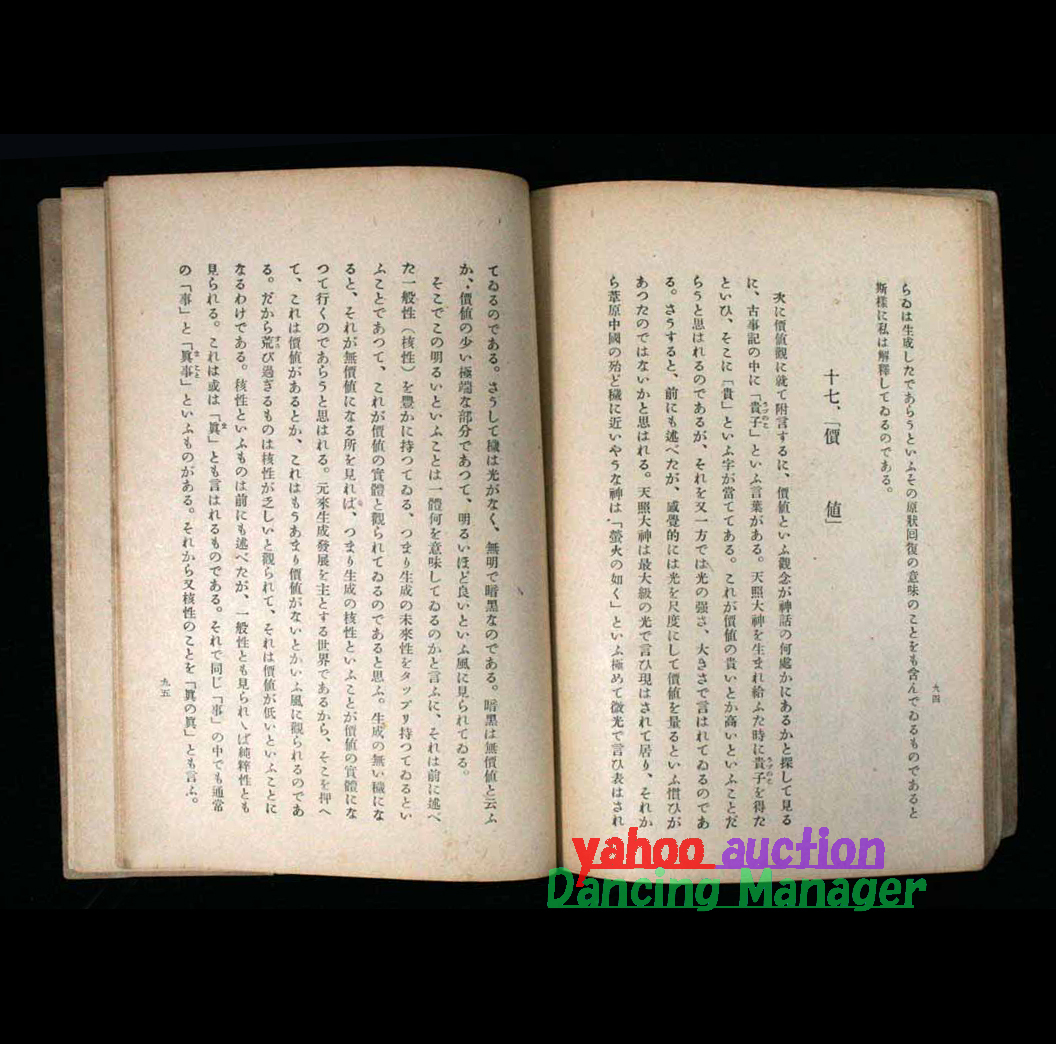 九四
らゐは生成したであらうといふその原狀回復の意味のことをも含んでゐるものであると
斯樣に私は解釋してゐるのである。
十七、「價値」
次に價値觀に就て附言するに、價値といふ觀念が神話の何處かにあるかと探して見る
に、古事記の中に「貴子」といふ言葉がある。天照大神を生まれ給ふた時に貴子を得た
といひ、そこに「貴」といふ字が當ててある。これが價値の貴いとか高いといふことだ
らうと思はれるのであるが、それを又一方では光の强さ、大きさで言はれてゐるのであ
る。さうすると、前にも述べたが、感覺的には光を尺度にして價値を量るといふ慣ひが
あつたのではないかと思はれる。天照大神は最大級の光で言ひ現はされて居り、それか
ら葦原中國の殆ど穢に近いやうな神は「螢火の如く」といふ極めて微光で言ひ表はされ
てゐるのである。さうして穢は光がなく、無明で暗黑なのである。暗黑は無價値と云ふ
か、價値の少い極端な部分であつて、明るいほど良いといふ風に見られてゐる。
そこでこの明るいといふことは一體何を意味してゐるのかと言ふに、それは前に述べ
た一般性（核性）を豐かに持つてゐる、つまり生成の未來性をタップリ持つてゐるとい
ふことであつて、これが價値の實體と觀られてゐるのであると思ふ。生成の無い穢にな
ると、それが無價値になる所を見れば、つまり生成の核性といふことが價値の實體にな
つて行くのであらうと思はれる。元來生成發展を主とする世界であるから、そこを押へ
て、これは價値があるとか、これはもうあまり價値がないとかいふ風に觀られるのであ
る。だから荒び過ぎるものは核性が乏しいと觀られて、それは價値が低いといふことに
なるわけである。核性といふものは前にも述べたが、一般性とも見られゝば純粹性とも
見られる。これは或は「眞」とも言はれるものである。それで同じ「事」の中でも通常
の「事」と「眞事」といふものがある。それから又核性のことを「眞の眞」とも言ふ。
九五
yahoo auction
Dancing Manager